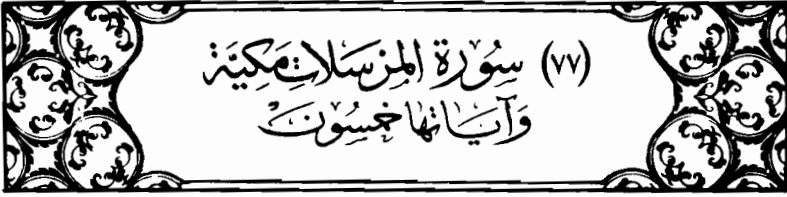 (٧٧) سُورَة المرسَلات مَكيَّة
وَآيَاتها خمسُون